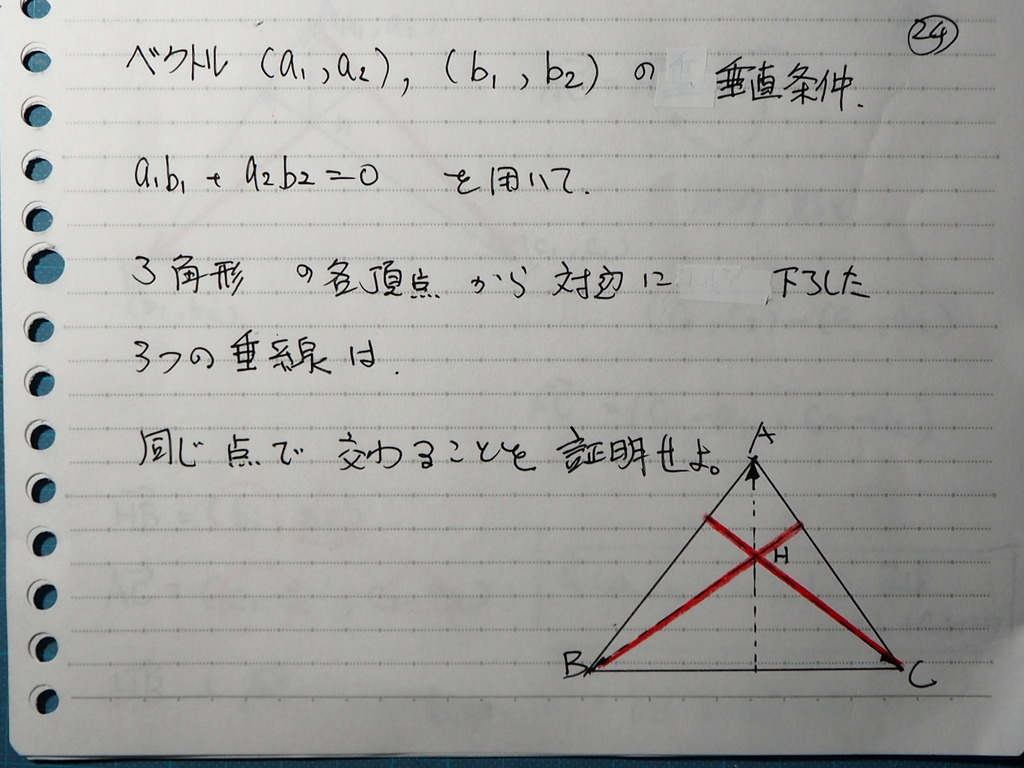 24
ベクトル (a1, a2), (b1, b2) の 垂直条件.
a1b1 + a2b2 = 0 を用いて.
3角形 の各頂点 から 対辺に 下ろした
3つの垂線は.
同じ点で 交わることを 証明せよ。
A
H
B
C